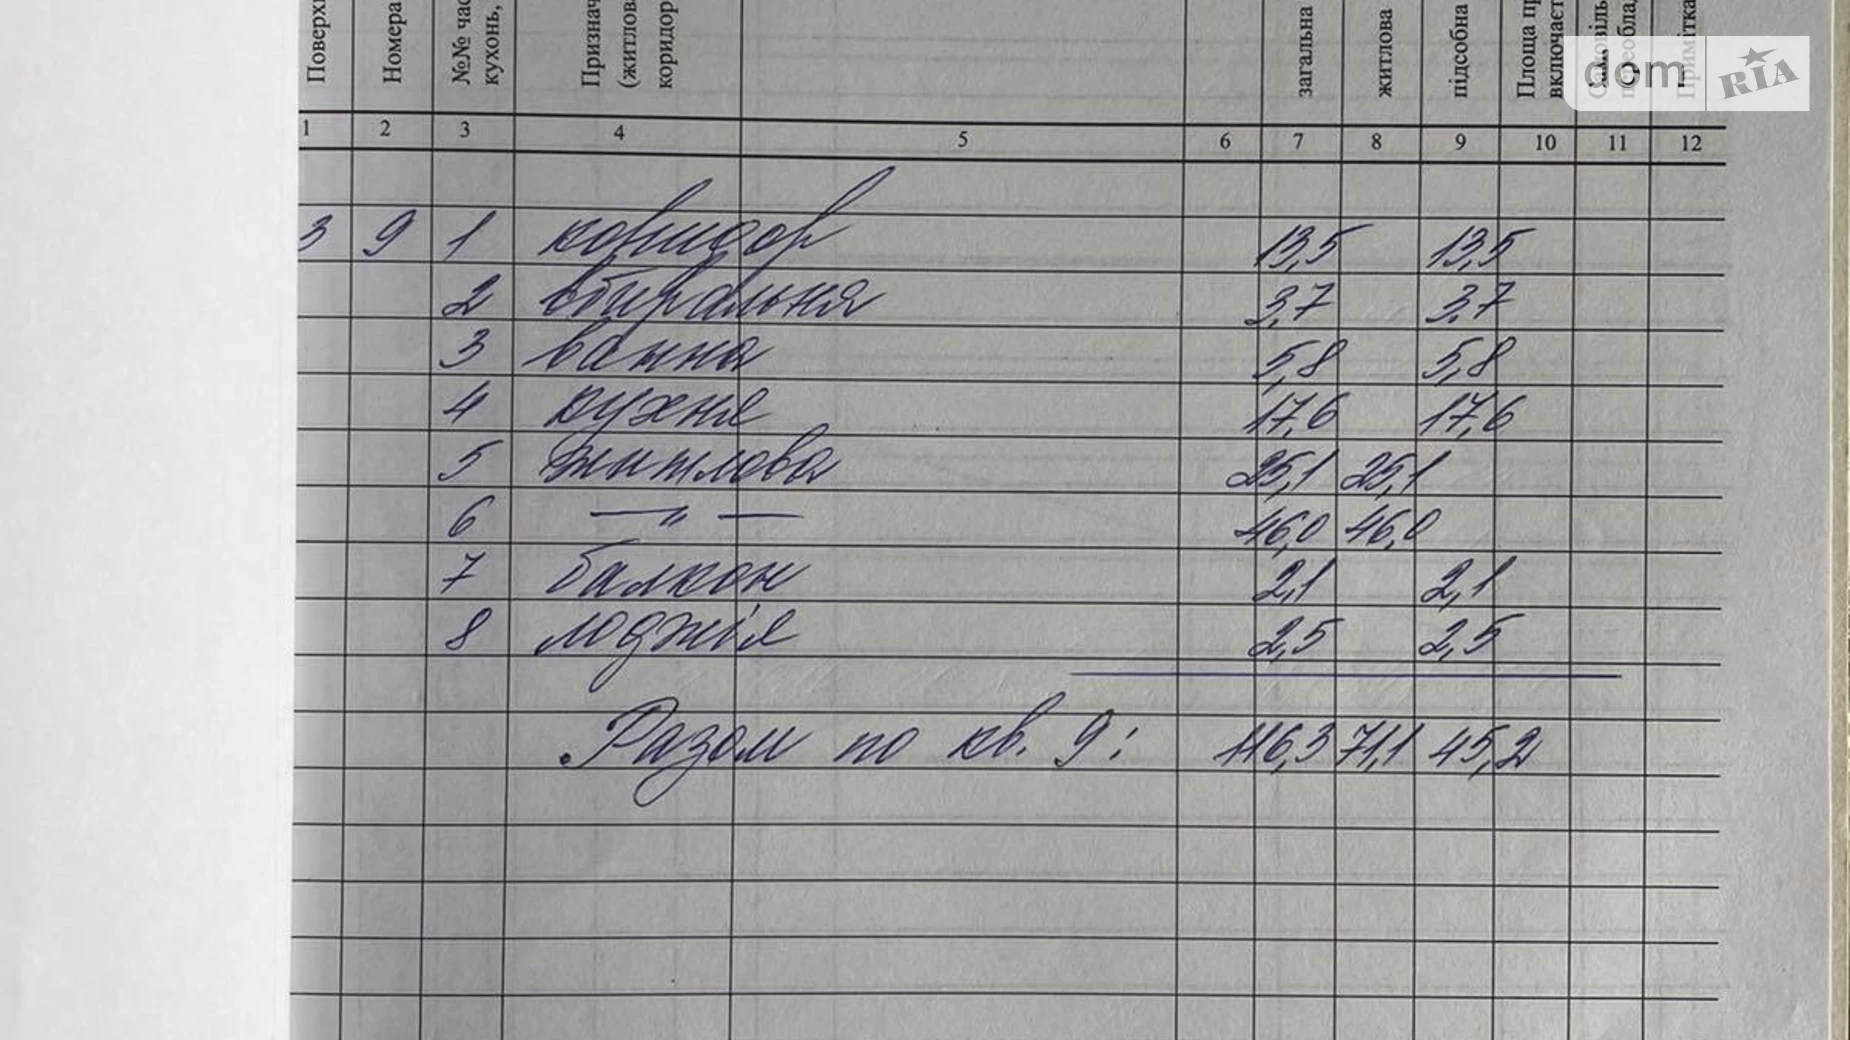 Поверх
Номера
№№ час
кухонь,
Признач
(житлова
коридор
загальна
житлова
підсобна
Площа пр
включаєт
Самовіль
Примітка
dom RIA
1 2 3 4 5 6 7 8 9 10 11 12
3 9 1 коридор 13,5 13,5
2 вбиральня 3,7 3,7
3 ванна 5,8 5,8
4 кухня 17,6 17,6
5 житлова 25,1 25,1
6 — „ — 46,0 46,0
7 балкон 2,1 2,1
8 лоджія 2,5 2,5
Разом по кв. 9: 116,3 71,1 45,2